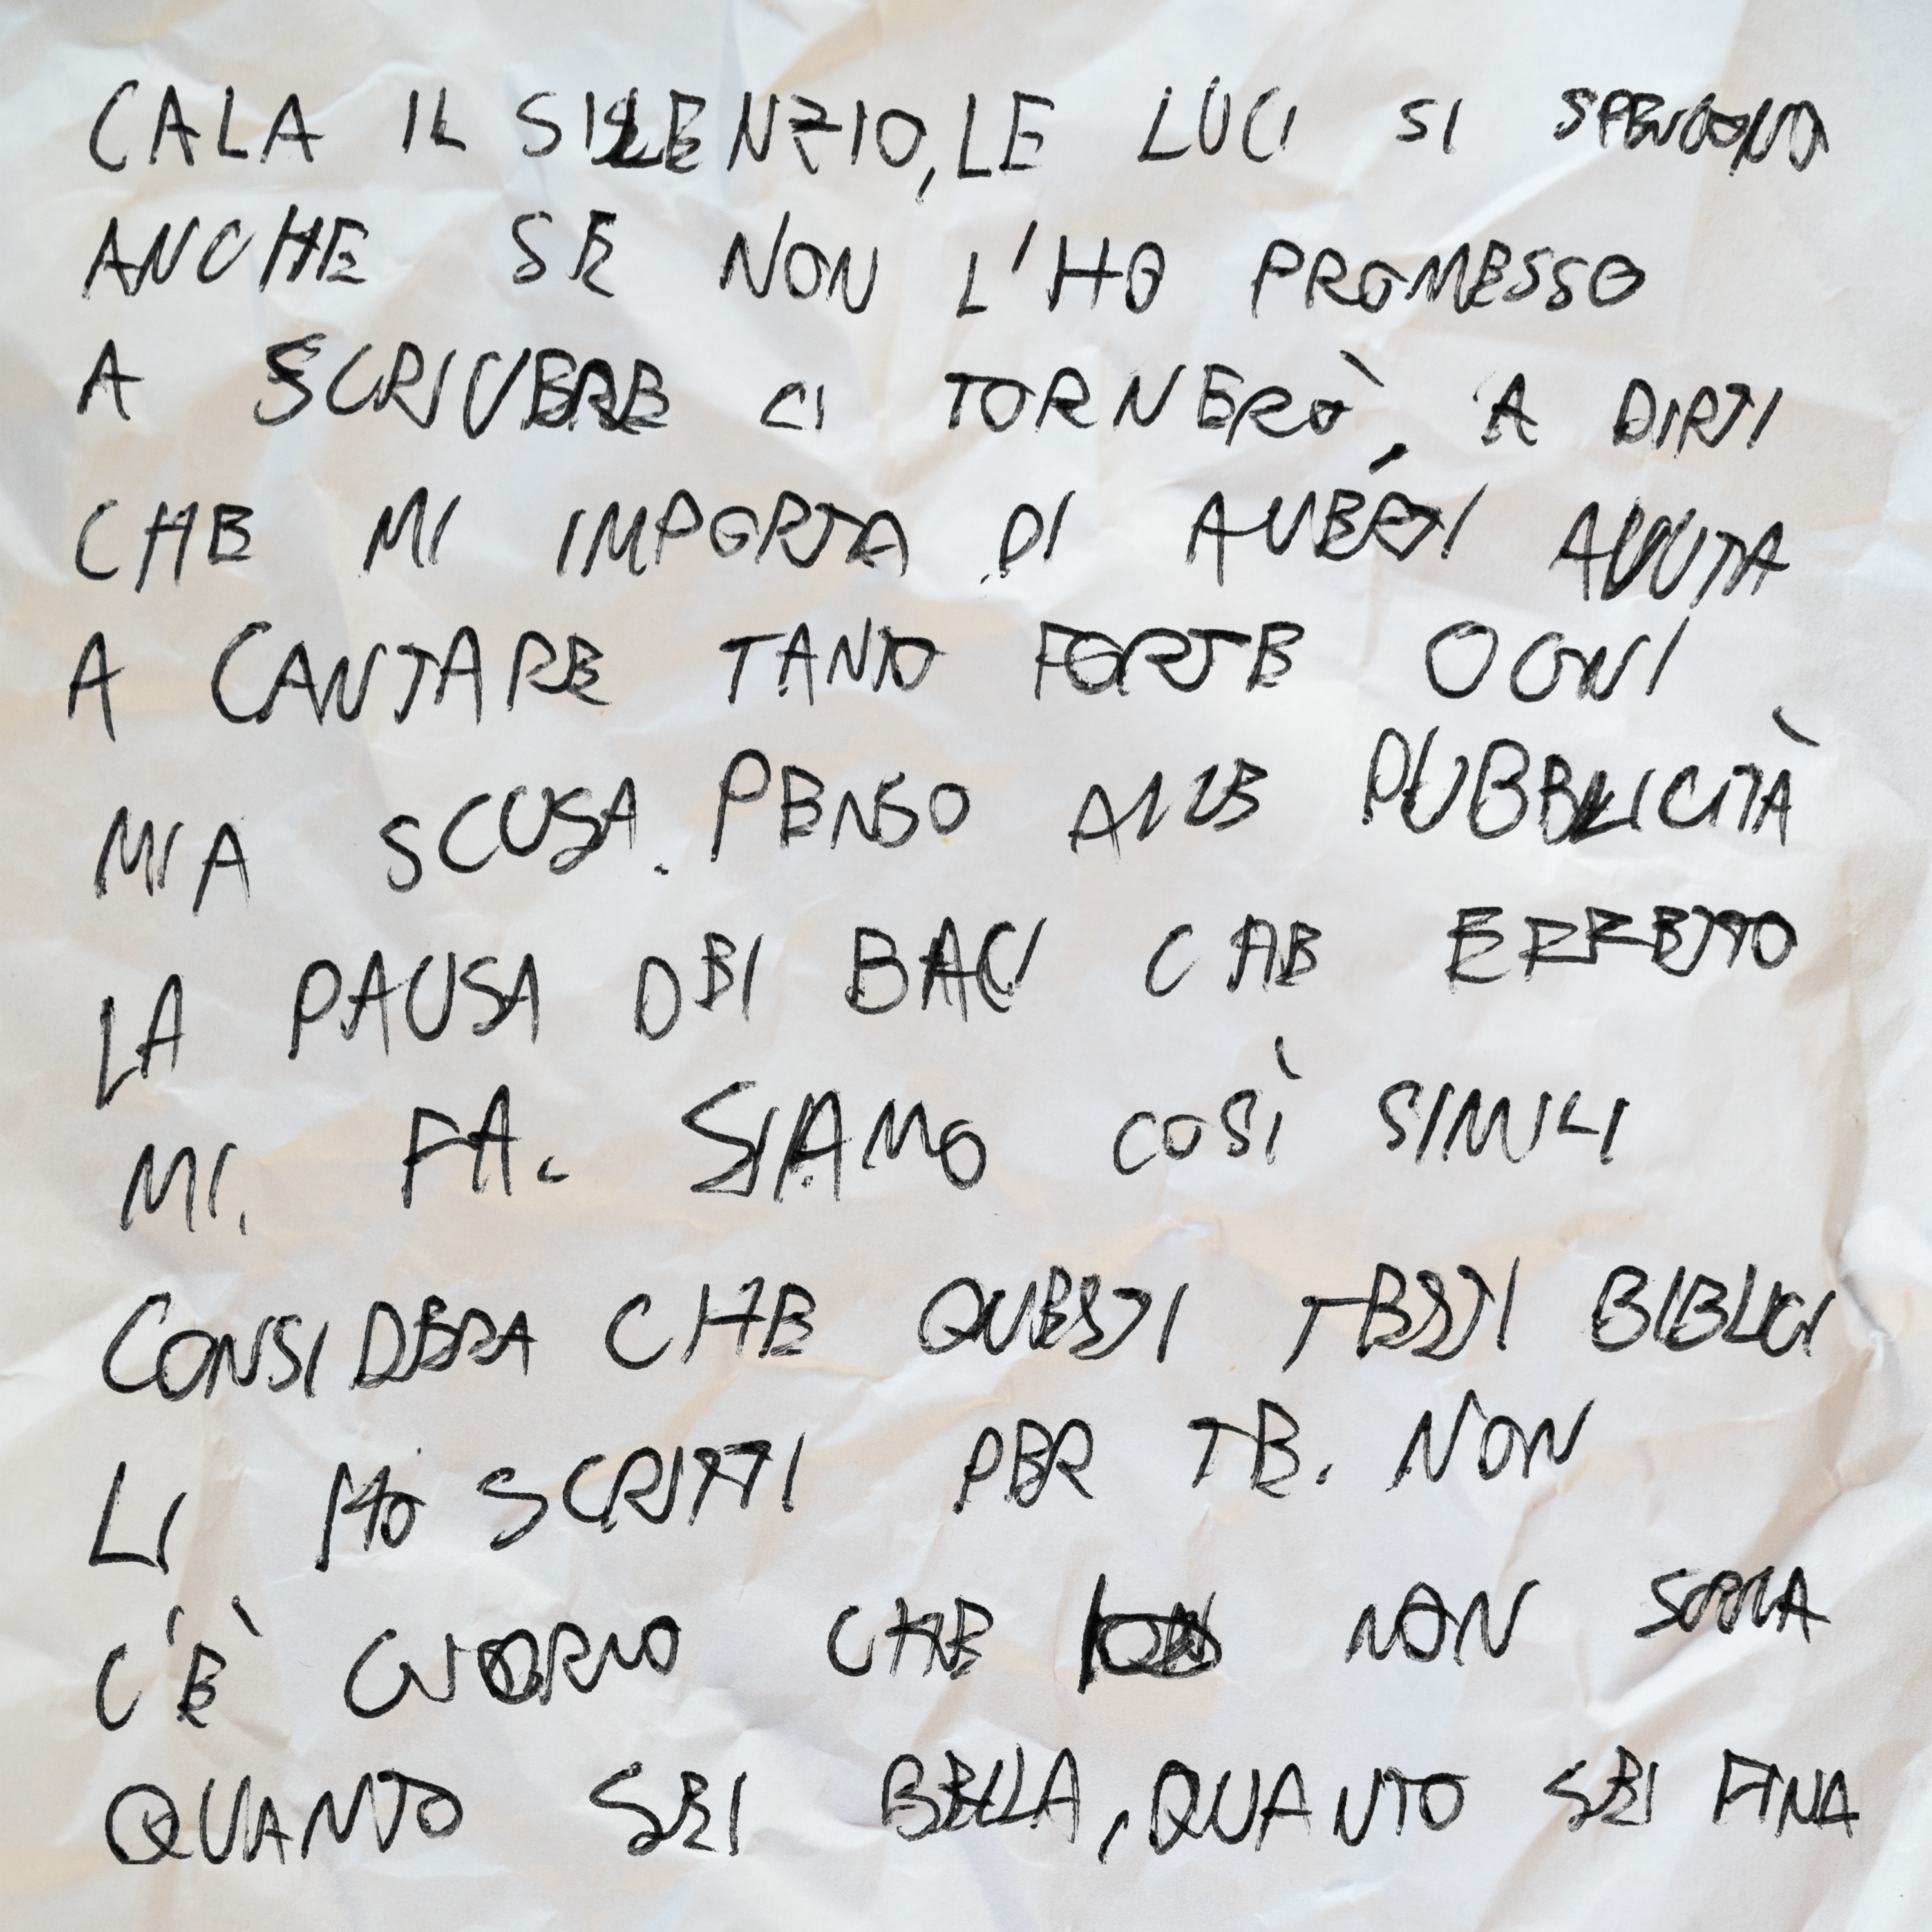 CALA IL SILENZIO, LE LUCI SI SPENGONO
ANCHE SE NON L'HO PROMESSO
A SCRIVERE CI TORNERÒ, A DIRTI
CHE MI IMPORTA DI AVERTI AVUTA
A CANTARE TANTO FORTE OGNI
MIA SCUSA. PENSO ALLE PUBBLICITÀ
LA PAUSA DEI BACI CHE EFFETTO
MI. FA. SIAMO COSÌ SIMILI
CONSIDERA CHE QUESTI TESTI BIBLICI
LI HO SCRITTI PER TE. NON
C'È GIORNO CHE NON SAPPIA
QUANTO SEI BELLA, QUANTO SEI FINA